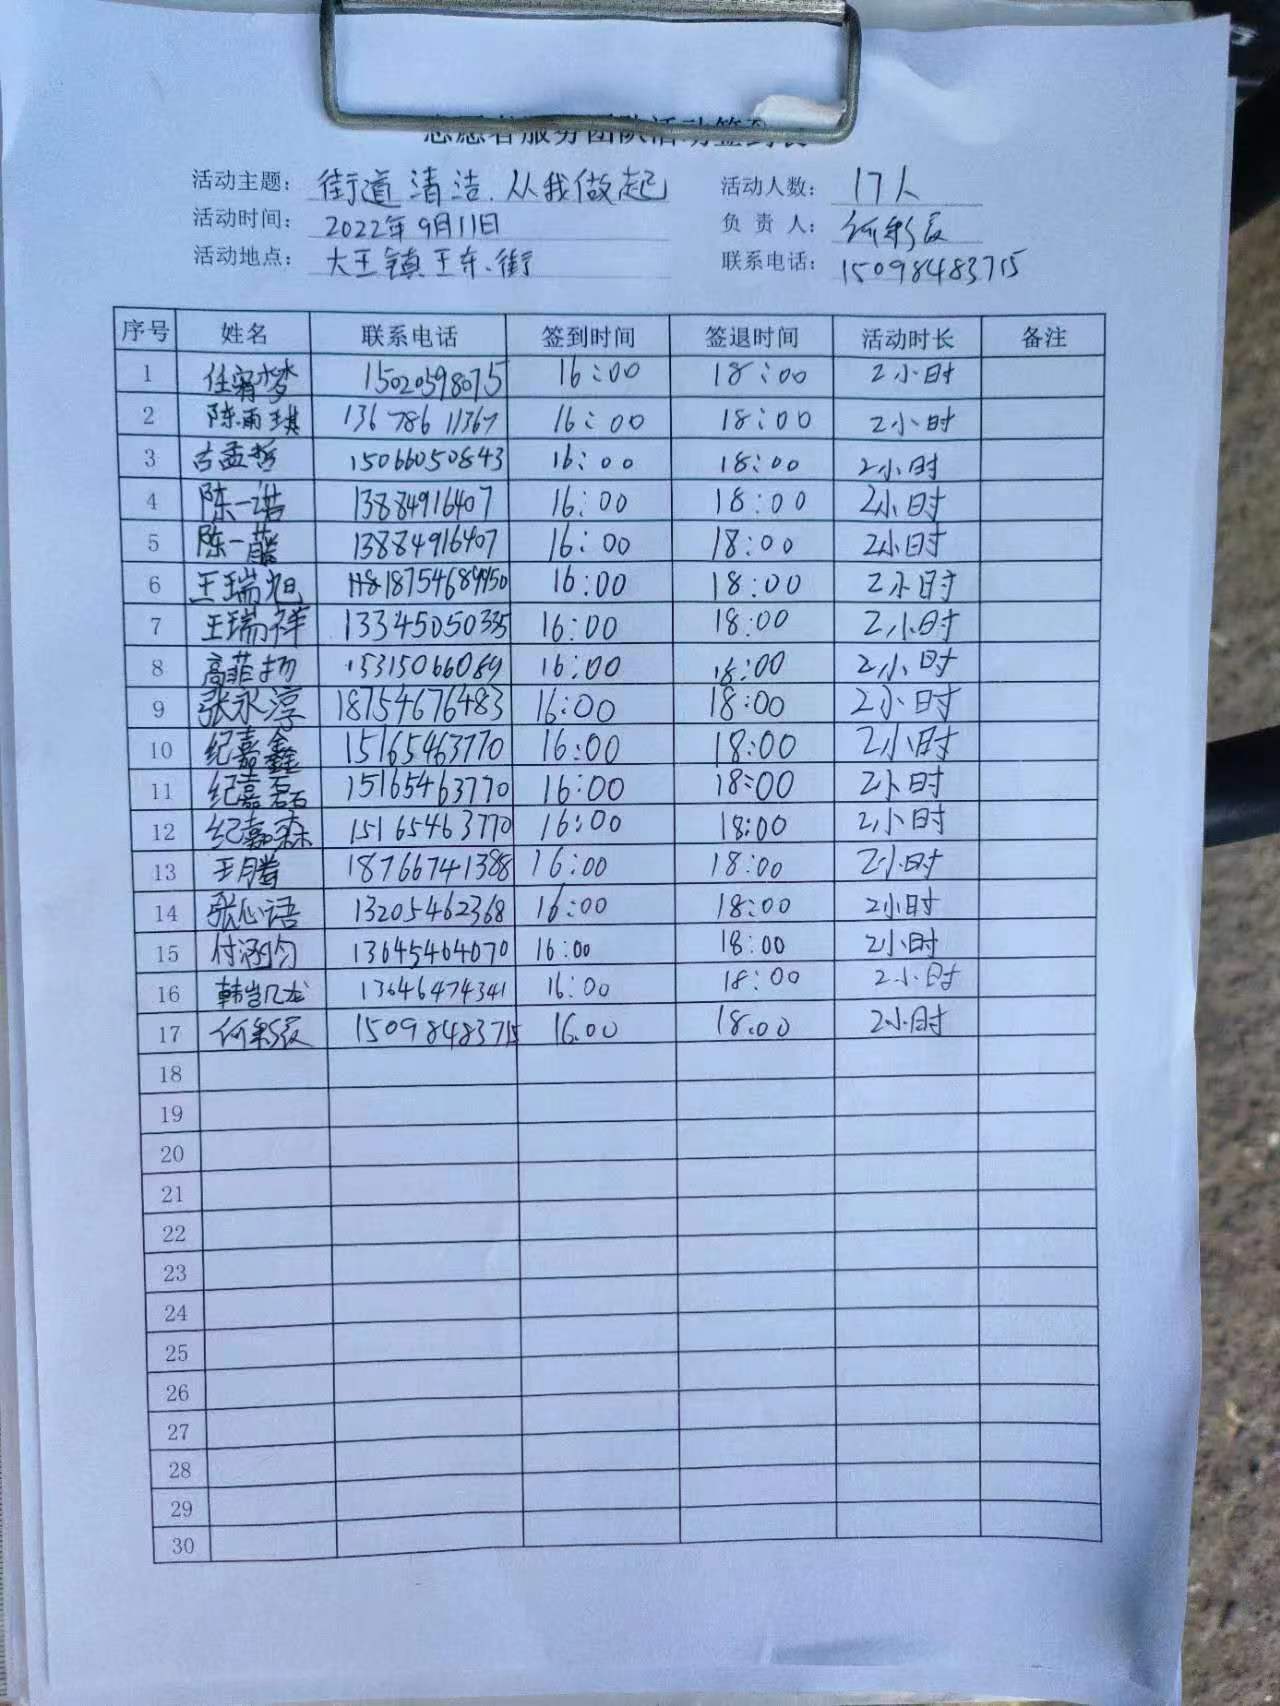 志愿者服务团队活动签到表
活动主题： 街道清洁.从我做起 活动人数： 17人
活动时间： 2022年9月11日 负 责 人：
活动地点： 大王镇王东.街 联系电话： 15098483715
序号 姓名 联系电话 签到时间 签退时间 活动时长 备注
1 15020598075 16:00 18:00 2小时
2 陈雨琪 13678611367 16:00 18:00 2小时
3 古孟哲 15066050843 16:00 18:00 2小时
4 陈一诺 13884916407 16:00 18:00 2小时
5 陈一 13884916407 16:00 18:00 2小时
6 王瑞旭 16:00 18:00 2小时
7 王瑞祥 13345050335 16:00 18:00 2小时
8 高菲扬 15315066089 16:00 18:00 2小时
9 张永淳 18754676483 16:00 18:00 2小时
10 纪嘉鑫 15165463770 16:00 18:00 2小时
11 纪嘉磊 15165463770 16:00 18:00 2小时
12 纪嘉森 15165463770 16:00 18:00 2小时
13 王腾 18766741388 16:00 18:00 2小时
14 张心语 13205462368 16:00 18:00 2小时
15 付涵钧 13645464070 16:00 18:00 2小时
16 韩凯龙 13646474341 16:00 18:00 2小时
17 15098483715 16.00 18.00 2小时
18
19
20
21
22
23
24
25
26
27
28
29
30